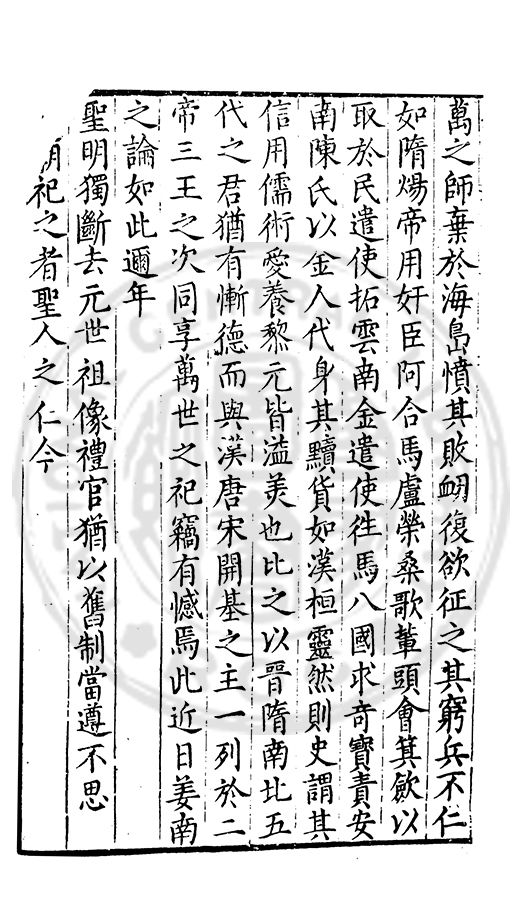 萬之師棄於海島憤其敗衂復欲征之其窮兵不仁
如隋煬帝用奸臣阿合馬盧榮桑歌軰頭會箕歛以
取於民遣使拓雲南金遣使徃馬八國求奇寶責安
南陳氏以金人代身其黷貨如漢桓靈然則史謂其
信用儒術愛養黎元皆溢美也比之以晉隋南北五
代之君猶有慚德而與漢唐宋開基之主一列於二
帝三王之次同享萬世之祀竊有憾焉此近日姜南
之論如此邇年
聖明獨斷去元世祖像禮官猶以舊制當遵不思
祀之者聖人之仁今